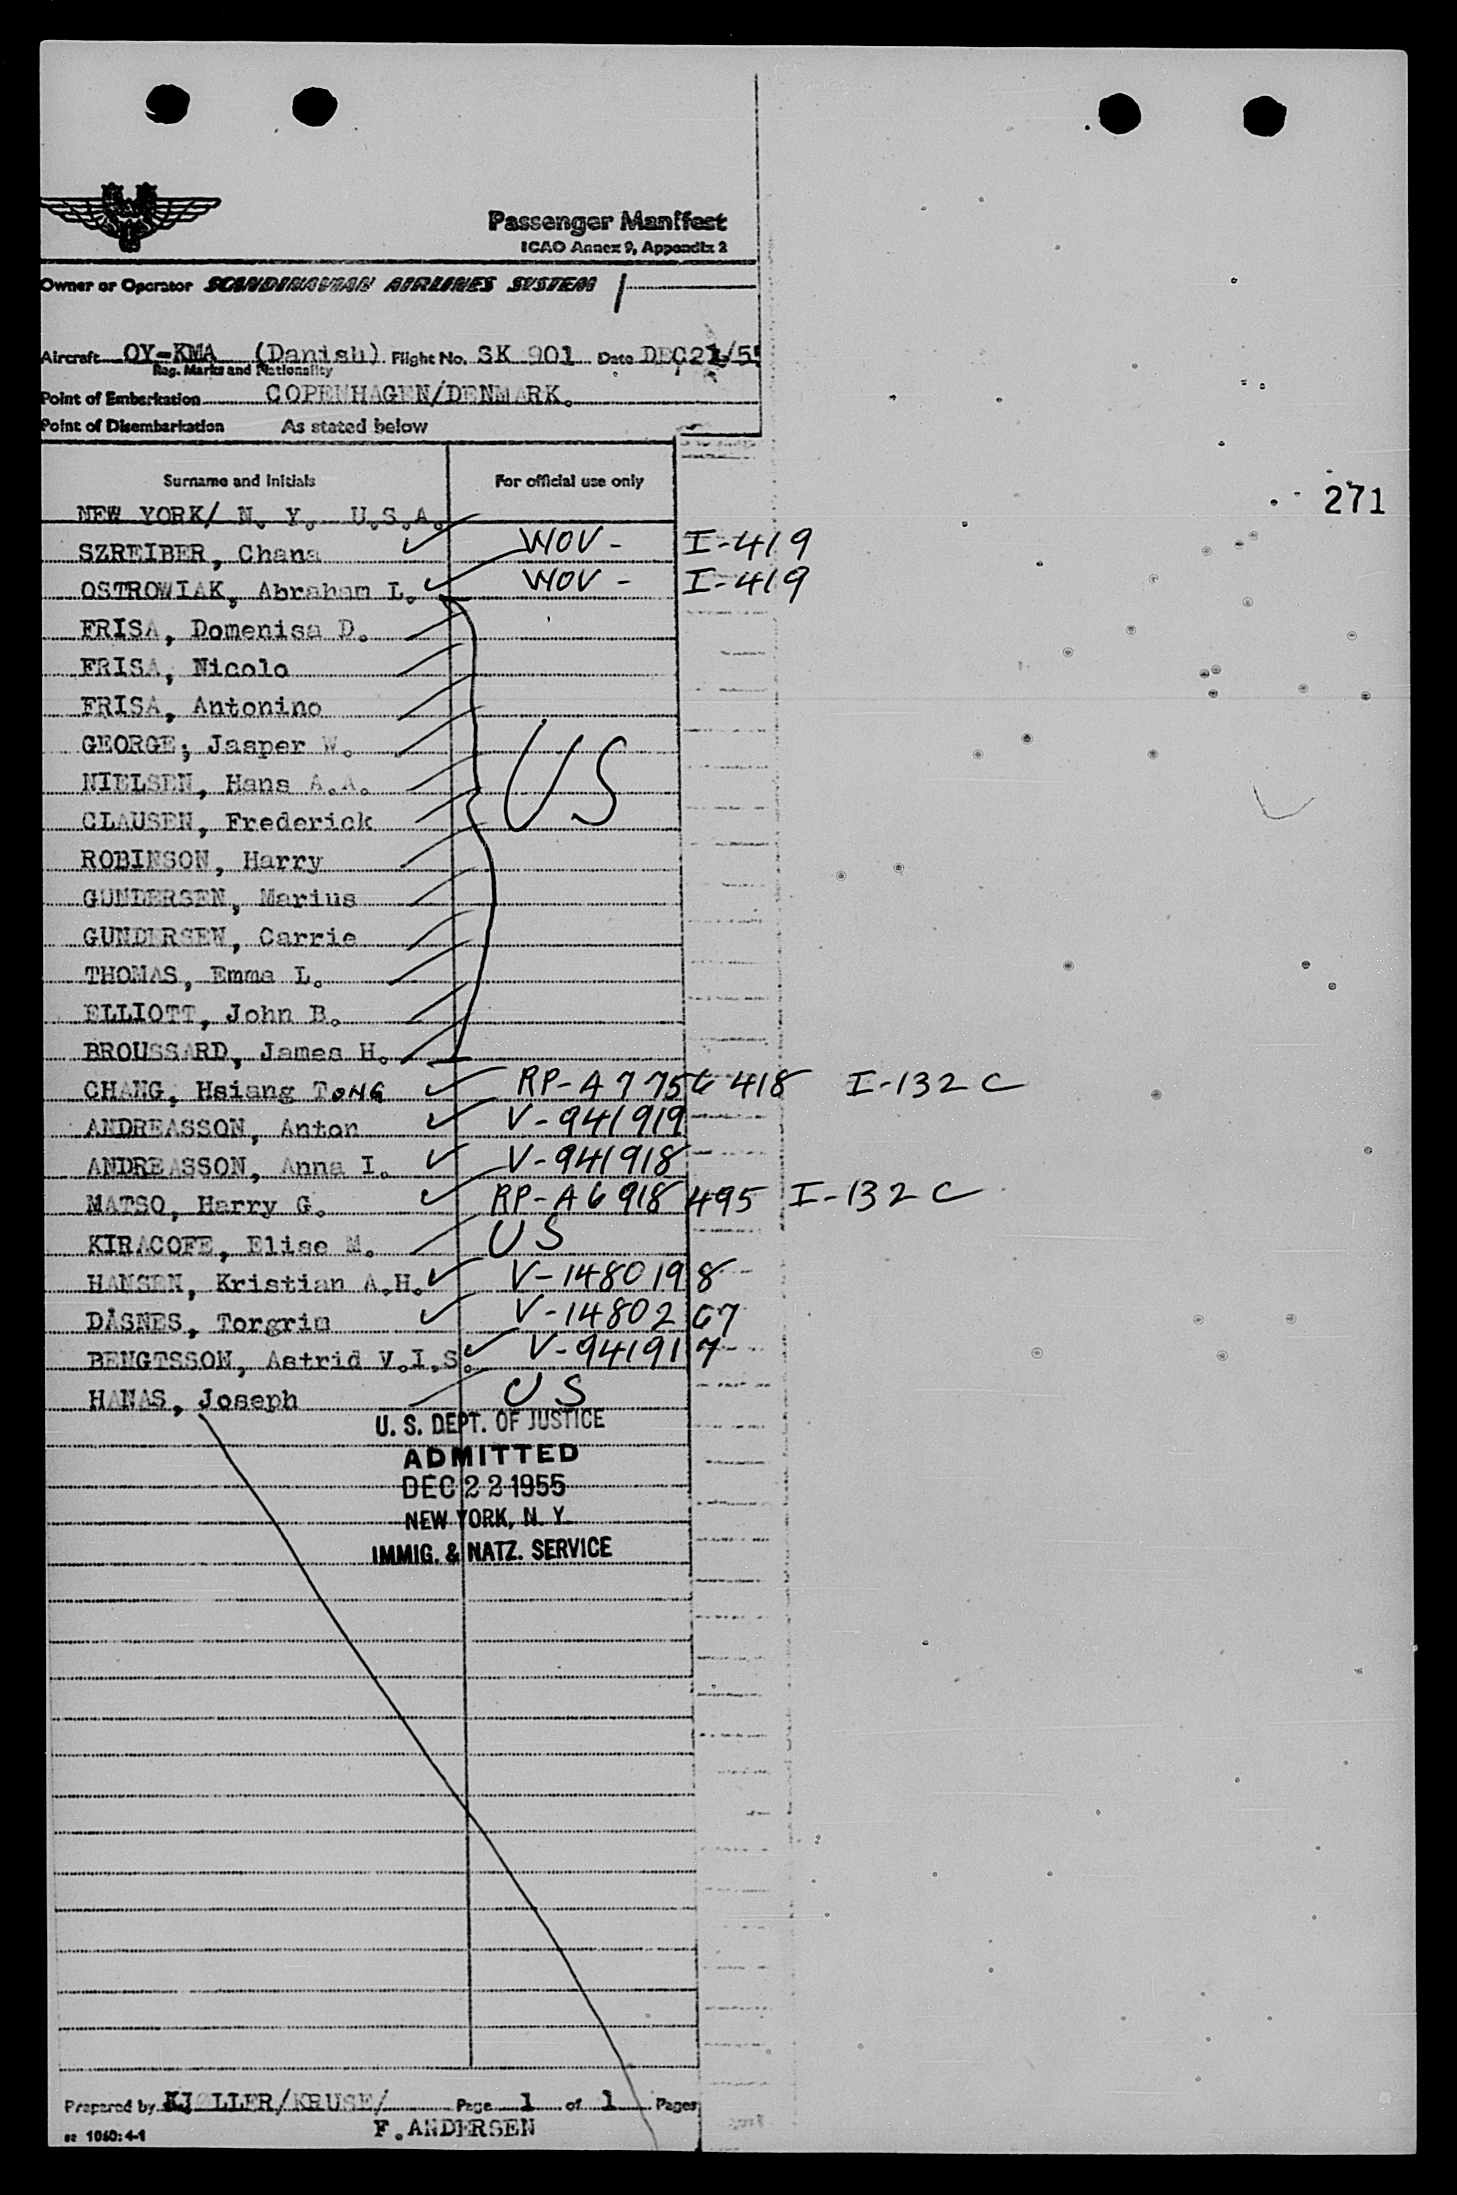 Passenger Manifest
ICAO Annex 9, Appendix 2
Owner or Operator SCANDINAVIAN AIRLINES SYSTEM
Aircraft OY-KMA (Danish) Flight No. SK 901 Date DEC21/55
Reg. Marks and Nationality
Point of Embarkation COPENHAGEN/DENMARK.
Point of Disembarkation As stated below
Surname and Initials For official use only
271
NEW YORK/ N. Y. U.S.A.
SZREIBER, Chana WOV - I-419
OSTROWIAK, Abraham L. WOV - I-419
FRISA, Domenisa D.
FRISA, Nicolo
FRISA, Antonino
GEORGE, Jasper W.
NIELSEN, Hans A.A. US
CLAUSEN, Frederick
ROBINSON, Harry
GUNDERSEN, Marius
GUNDERSEN, Carrie
THOMAS, Emma L.
ELLIOTT, John B.
BROUSSARD, James H.
CHANG, Hsiang TONG RP-A7756418 I-132C
ANDREASSON, Anton V-941919
ANDREASSON, Anna I. V-941918
MATSO, Harry G. RP-A6918495 I-132C
KIRACOFE, Elise M. US
HANSEN, Kristian A.H. V-1480198
DÅSNES, Torgrim V-1480267
BENGTSSON, Astrid V.I.S. V-941917
HANAS, Joseph US
U. S. DEPT. OF JUSTICE
ADMITTED
DEC 22 1955
NEW YORK, N. Y.
IMMIG. & NATZ. SERVICE
Prepared by KJØLLER/KRUSE/ Page 1 of 1 Pages
F.ANDERSEN
1060:4-1